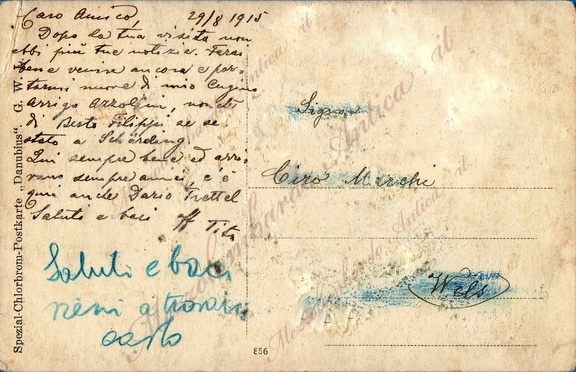 Caro Amico, 29/8 1915
Dopo la tua visita non
ebbi più tue notizie. Farai
bene venire ancora e por-
tarmi nuove di mio Cugino
Arrigo Azzolini, non
di Beato Filippi se se
stato a Schärding.
Qui sempre bene ed arri-
vano sempre amici, c'è
qui anche Dario Trettel
Saluti e baci
Tito
Saluti e baci
vieni a trovarci
Signor
Ciro Marchi
Wels
Spezial-Chlorbrom-Postkarte „Danubius" G. W.
856
Mezzolombardo Antica . it